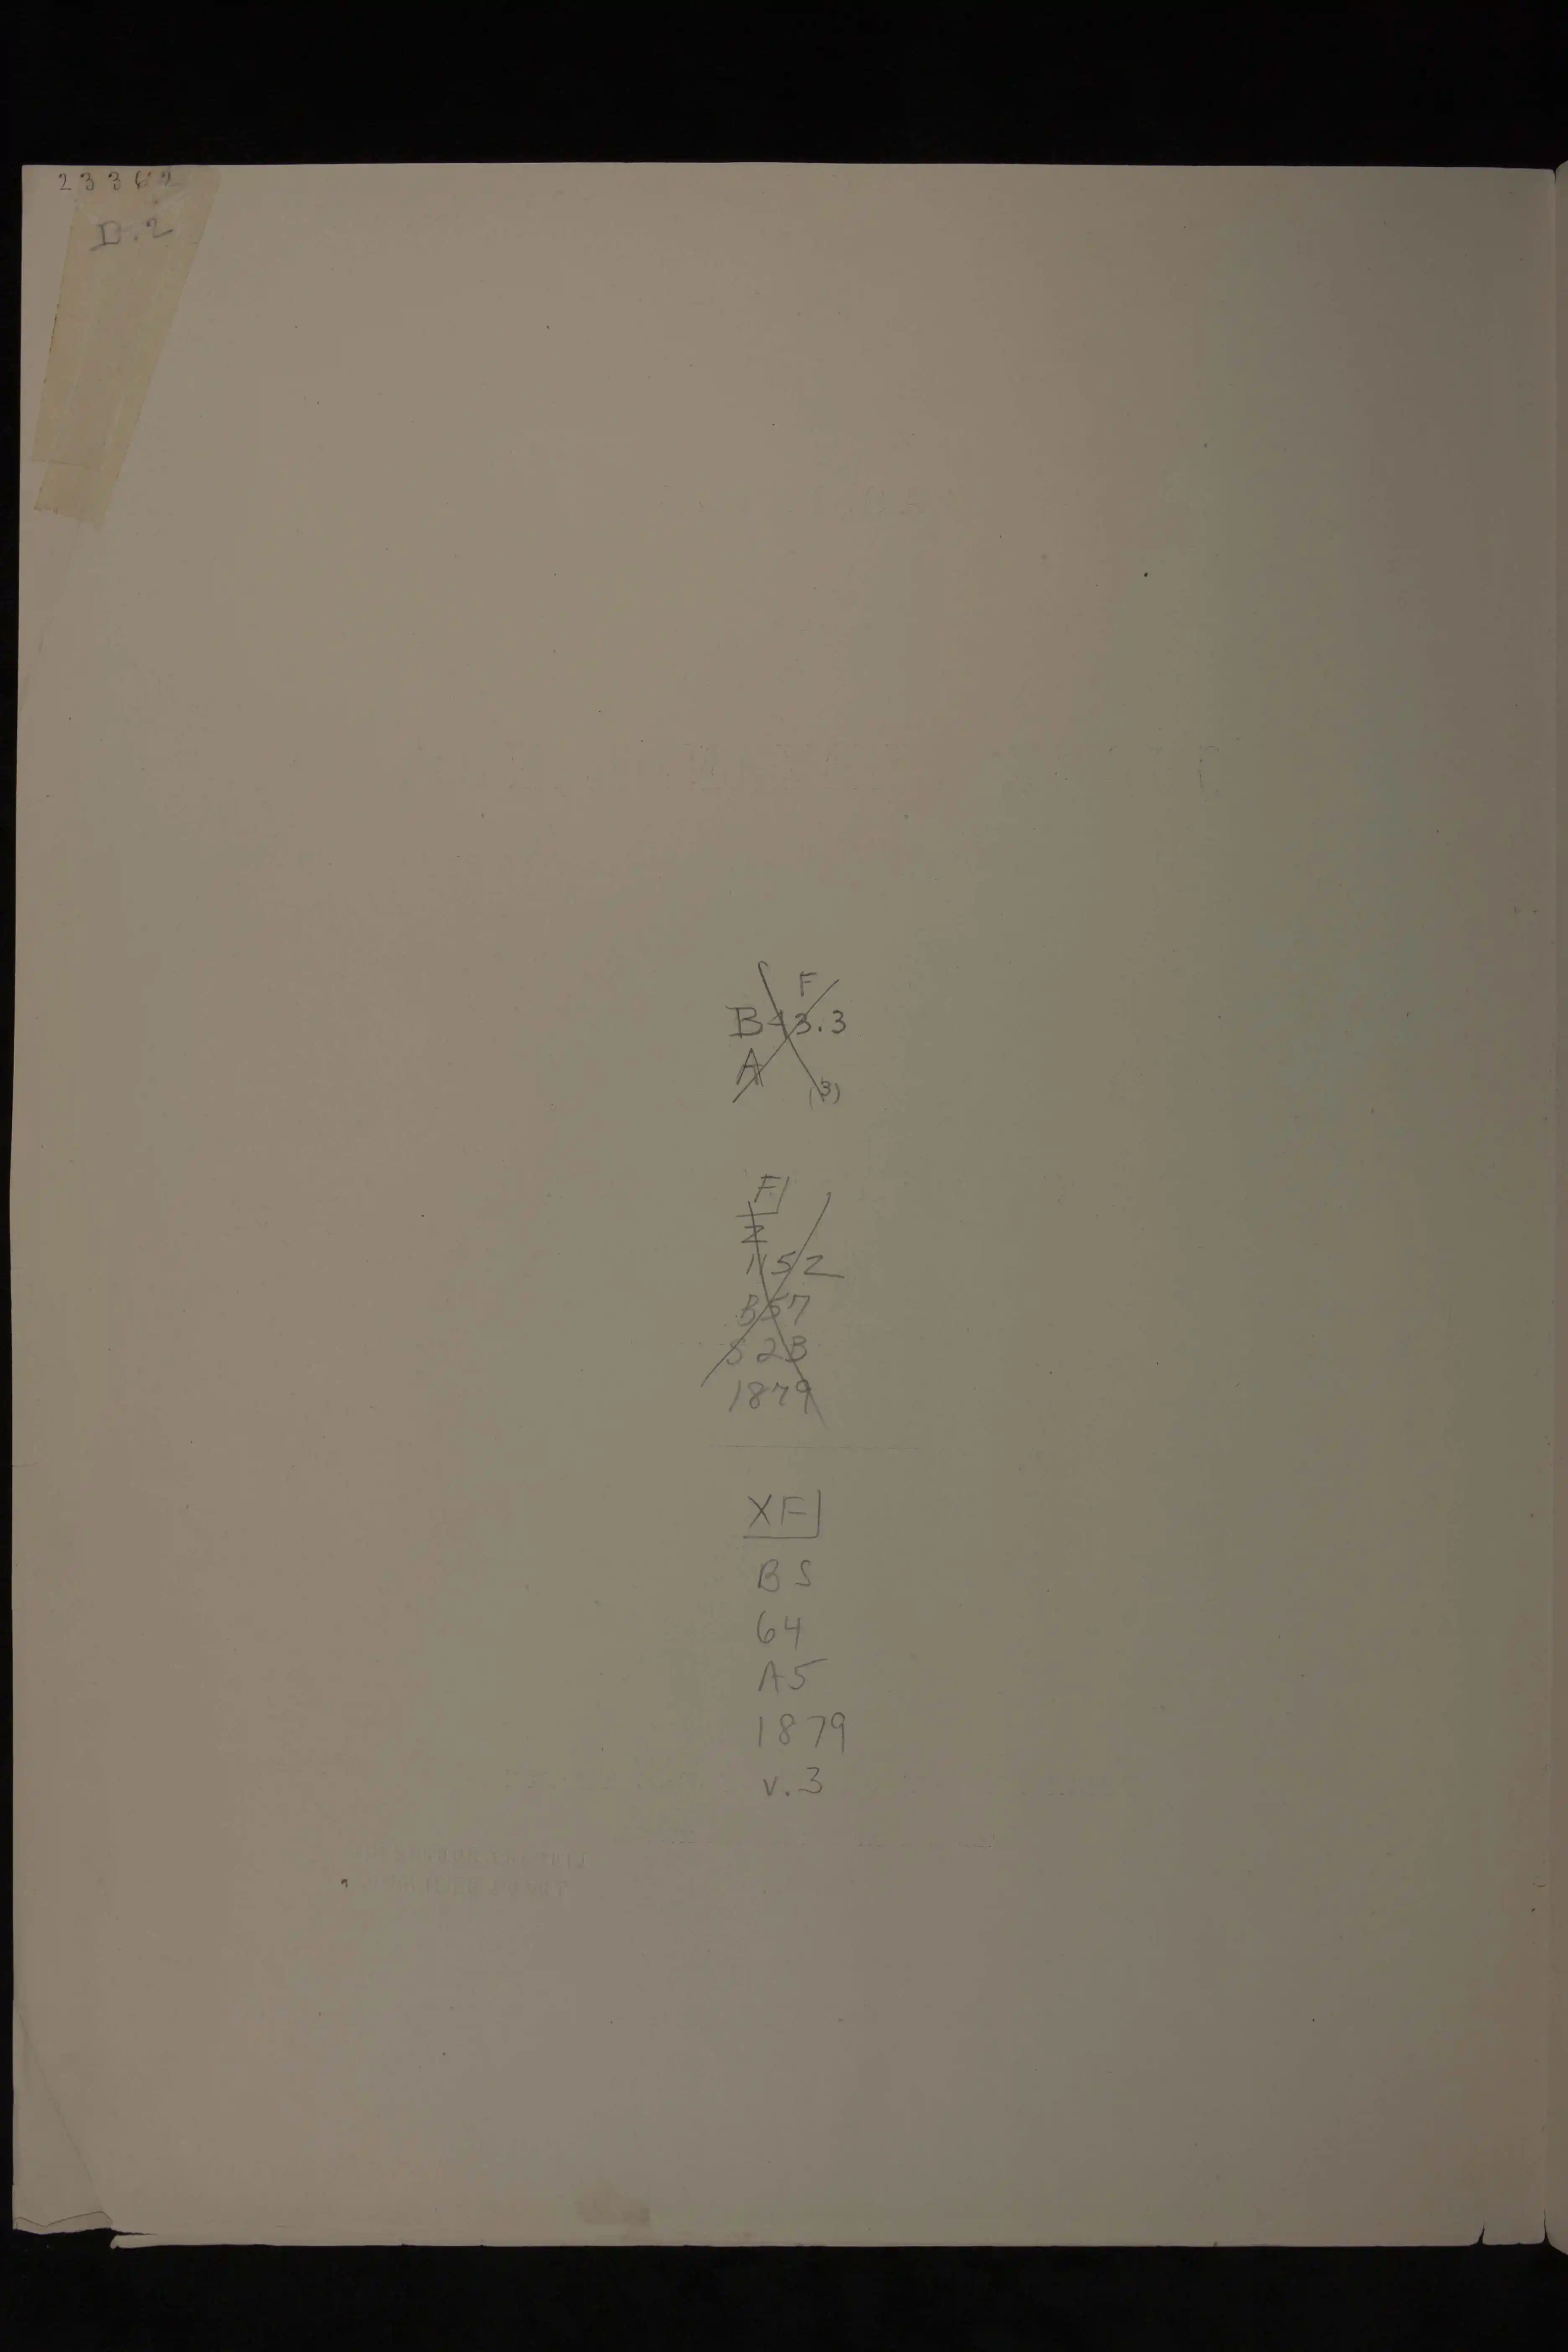 23362
D.2
F
B-13.3
A
(3)
F
Z
1152
B57
S2B
1879
XF
BS
64
A5
1879
v.3